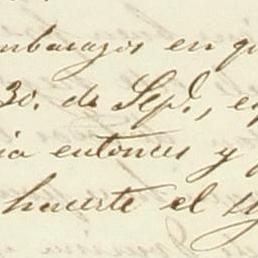 mbarazos en qu
30. de Sep.e, es
ia entonces y
hacerte el sig